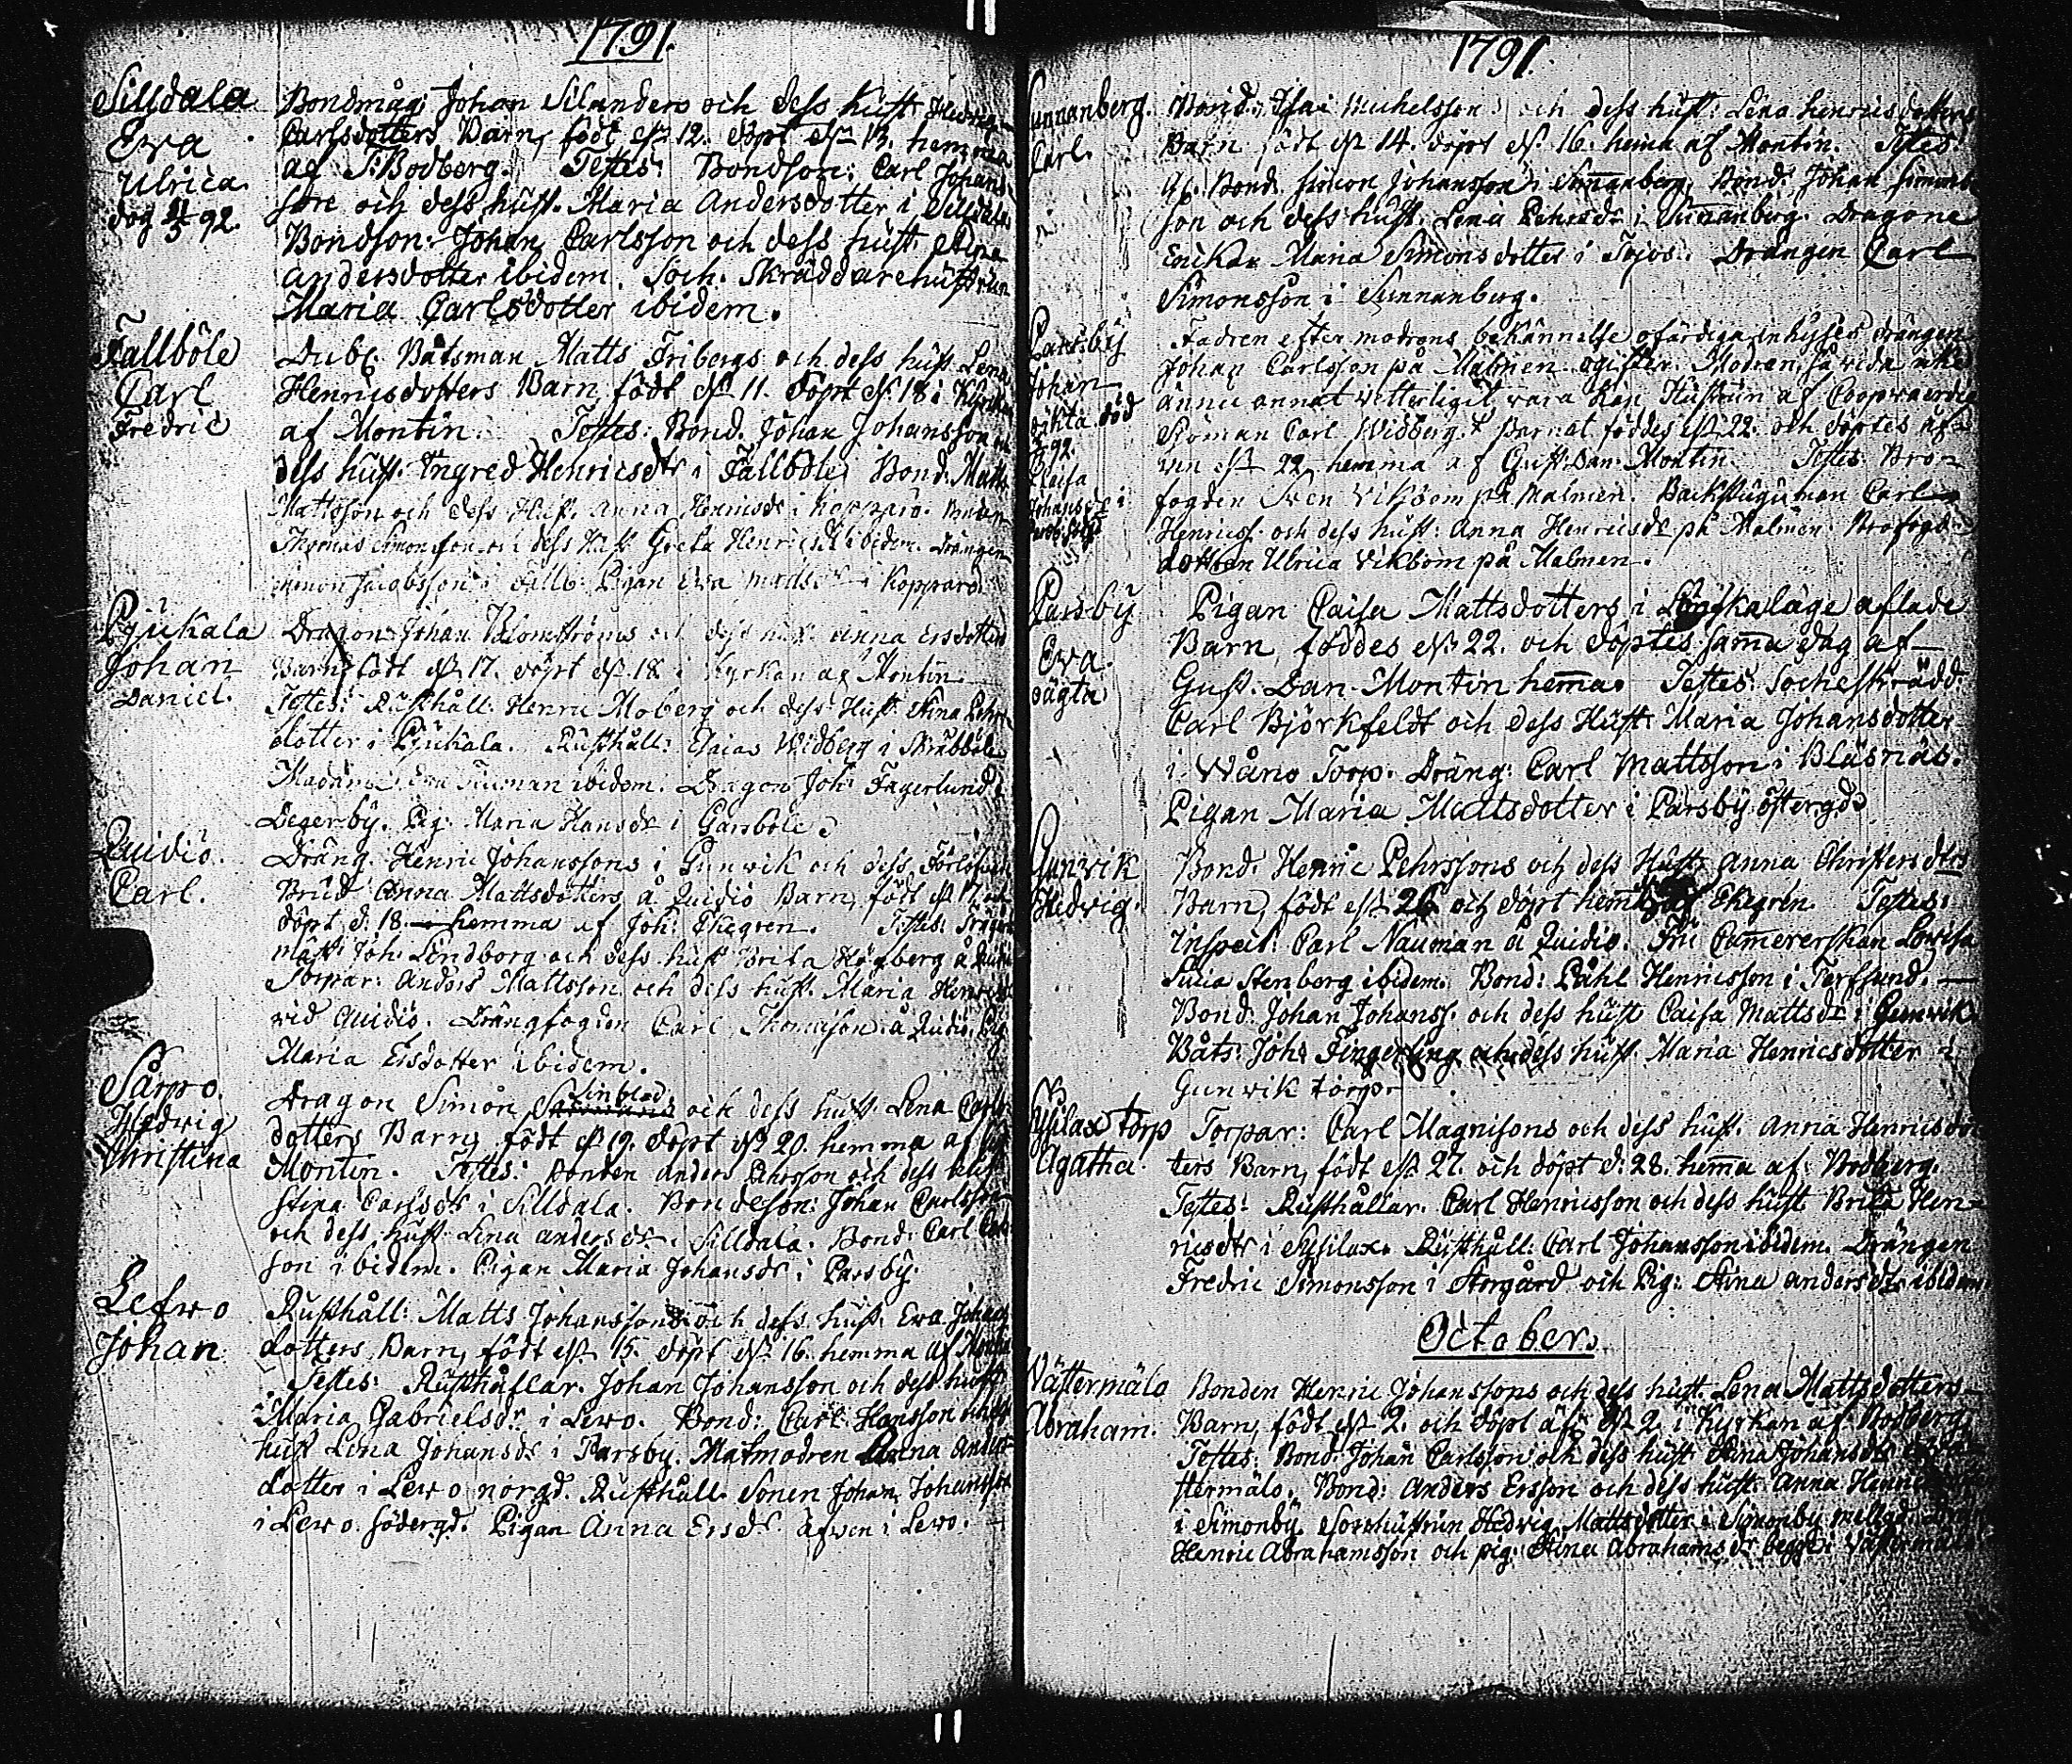 1791.
Silsdala
Ewa
Ulrica.
dog 92.
Bondmåg: Johan Silanders och dess hust. Hedvig
Carlsdotters Barn, födt d. 12. döpt d. 13. hemma
af S. Bodberg. Testes: Bondson: Carl Johans-
son och dess hust. Maria Andersdotter i Silsdala
Bondson: Johan Carlsson och dess hust.
Andersdotter ibidem. Soch. Skräddarehustrun
Maria Carlsdotter ibidem.
Fallböle
Carl
Fredric
Dubl. Båtsman Matts Fribergs och dess hust. Lena
Henricsdotters Barn, födt d. 11. döpt d. 18 i Kyrkan
af Montin. Testes: Bond. Johan Johansson
dess hust. Ingred Henricsdtr i Fallböle. Bond. Matts
Mattsson och dess Hust. Anna Henricsdr i Kopparö.
Thomas Simonsson och dess Hust. Greta Henricsdr ibidem. Drängen
Simon Jacobsson i Fallb. Pigan Ewa Mattsdr i Kopparö
Pjukala
Johan
Daniel.
Dragon: Johan Blomströms och dess hust. Anna Ersdotters
Barn, födt d. 17. döpt d. 18 i Kyrkan af Montin.
Testes: Rusthåll. Henric Moberg och dess Hust. Stina Pehrs-
dotter i Pjukala. Rusthåll: Esaias Widberg i Skräbböle
Madame Ewa ibidem. Dragon Joh: Fagerlund i
Degerby. Pig: Maria Hansdr i Garsböle.
Quidiö.
Carl.
Dräng. Henric Johanssons i Gunvik och dess Förlofvade
Brud Anna Mattsdotters å Quidiö Barn, födt d. 17. och
döpt d. 18. hemma af Joh: Ekegren. Testes:
mäst. Joh: Lindborg och dess hust. Brita Högberg å Quidiö
Torpar: Anders Mattsson och dess hust. Maria
vid Quidiö. Drängfogden Carl Thomasson å Quidiö. Pig.
Maria Ersdotter ibidem.
Särpo.
Hedwig
Christina
Dragon Simon Linblad och dess hust. Lena Carls-
dotters Barn, födt d. 19. döpt d. 20. hemma af
Montin. Testes: Bonden Anders Pehrsson och dess hust.
Stina Carlsdr i Silldala. Bondeson: Johan Carlsson
och dess hust. Lena Andersdr i Silldala. Bond: Carl
son ibidem. Pigan Maria Johansdr i Parsby.
Lefwo
Johan
Rusthåll: Matts Johanssons och dess hust. Ewa Johans-
dotters Barn, födt d. 15. döpt d. 16. hemma af Montin
Testes: Rusthållar. Johan Johansson och dess hust.
Maria Gabrielsdr i Lewo. Bond: Carl Hansson och dess
hust. Lena Johansdr i Parsby. Matmodren Anna Anders-
dotter i Lewo norgd. Rusthåll. Sonen Johan Johansson
i Lewo södergd. Pigan Anna Ersdr äfven i Lewo.
1791.
Sunnanberg.
Carl.
Bond. Isac Michelsson och dess hust: Lena Henricsdotters
Barn födt d. 14. döpt d. 16. hema af Montin. Testes:
Bond. Simon Johansson i Sunnanberg. Bond: Johan Simons-
son och dess hust. Lena Pehrsdr i Sunnanberg. Dragone
Enckan Maria Simonsdotter i Tojos. Drängen Carl
Simonsson i Sunnanberg.
Parsby
Johan
oäkta. död
92.
Fadren efter modrens bekännelse ofärdiga inhyses drängen
Johan Carlsson på Malmen ogifter. Modren, så vida icke
ännu annat vetterligit vara kan Hustrun af Coopvaerdie
Sjöman Carl Widberg. Barnet föddes d. 22. och döptes äf-
ven d. 22. hemma af Gust. Dan. Montin. Testes: Bro-
fogden Sven Vikbom på Malmen. Backstuguman Carl
Henricss. och dess hust: Anna Henricsdr på Malmen. Brofogde-
dottren Ulrica Vikbom på Malmen.
Parsby
Ewa.
oägta
Pigan Caisa Mattsdotters i Lönskaläge aflade
Barn, föddes d. 22. och döptes sama dag af
Gust. Dan. Montin hema. Testes: Socheskrädd.
Carl Björkfeldt och dess Hust: Maria Johansdotter
i Wåno Torp. Dräng: Carl Mattsson i Bläsnäs.
Pigan Maria Mattsdotter i Parsby östergd.
Gunvik
Hedvig.
Bond. Henric Pehrssons och dess Hust. Anna Christersdtrs
Barn, födt d. 26 och döpt hema af Ekegren. Testes:
Inspect: Carl Nauman å Quidiö. Fru Camererskan Lowisa
Lucia Stenborg ibidem. Bond: Påhl Henricsson i Terfsund.
Bond: Johan Johanss. och dess hust Caisa Mattsdr i Gunvik.
Båts: Joh: Fingerling och dess hust. Maria Henricsdotter i
Gunvik torp
Sysilax torp
Agatha.
Torpar: Carl Magnisons och dess hust. Anna Henricsdot-
ters Barn, födt d. 27. och döpt d. 28. hema af Bodberg.
Testes: Rusthållar. Carl Henricsson och dess hust. Brita Hen-
ricsdtr i Sysilax. Rusthåll: Carl Johansson ibidem. Drängen
Fredric Simonsson i Storgård och Pig: Stina Andersdtr ibidem
October.
Västermälo
Abraham.
Bonden Henric Johanssons och dess hust. Lena Mattsdotters
Barn, födt d. 2. och döpt äfv. d. 2 i Kyrkan af Bodberg,
Testes: Bond: Johan Carlsson och dess hust. Stina Johansdtr
stermälo. Bond: Anders Ersson och dess hust: Anna
i Simonby. Hedvig Mattsdotter i Simonby mellgd.
Henric Abrahamsson och pig: Stina Abrahamsdr begge i Västermälo